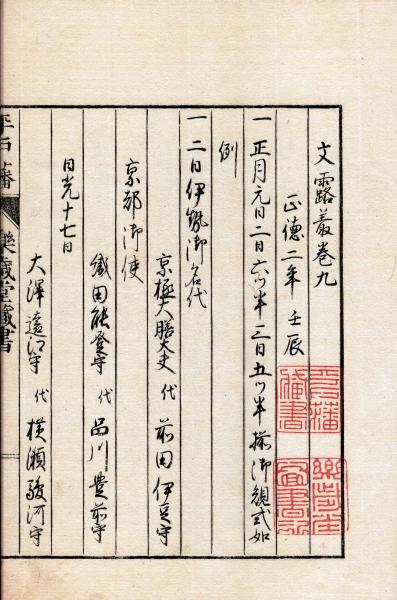 文露叢巻九
正徳二年 壬辰
一 正月元日二日六ツ半三日五ツ半揃御規式如
例
一 二日伊勢御名代
京極大膳大夫 代 前田伊豆守
京都御使
織田能登守 代 品川豊前守
日光十七日
大澤遠江守 代 横瀬駿河守
平戸藩
樂歳堂藏書